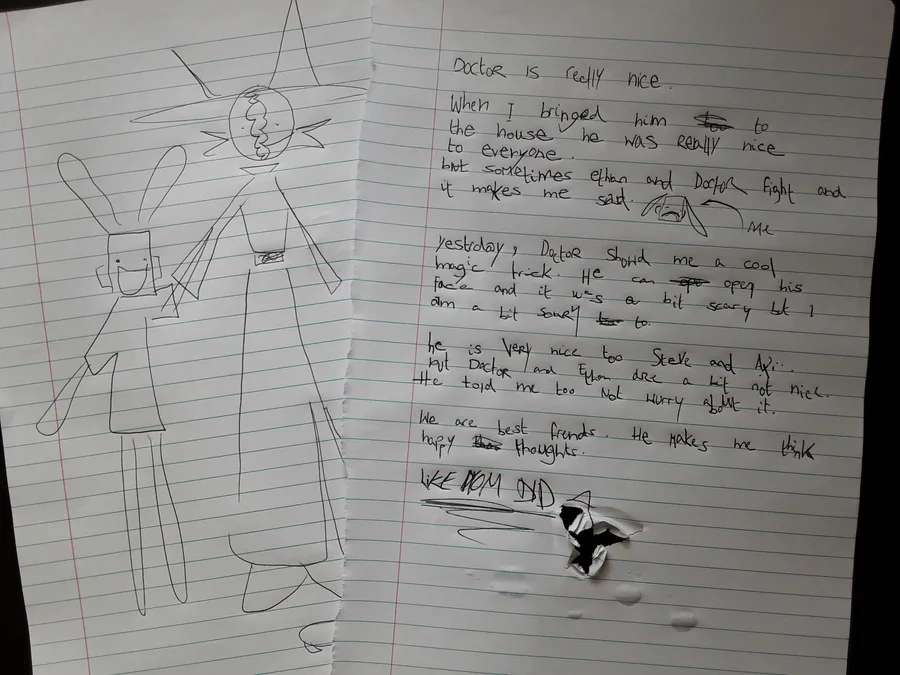 Doctor is really nice.
When I bringed him to
the house he was really nice
to everyone.
but sometimes ethan and Doctor fight and
it makes me sad.
Me
yesterday, Doctor showd me a cool
magic trick. He can open his
face and it was a bit scary but I
am a bit scary to.
he is very nice too Steve and
but Doctor and Ethan are a bit not nice.
He told me too Not wurry about it.
We are best frends. He makes me think
happy thoughts.
LIKE MOM DID